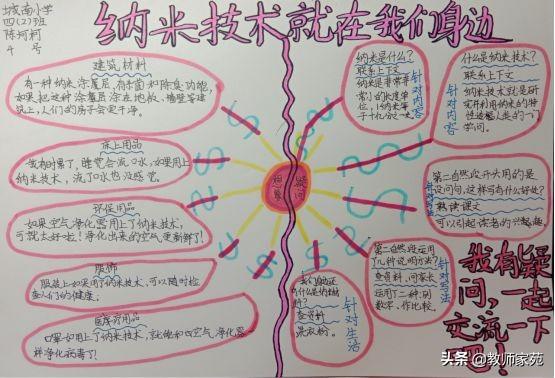 城南小学
四(2)班
陈珂柯
4 号
纳米技术就在我们身边
建筑材料
有一种纳米涂层,有杀菌和除臭功能,
如果把这种涂层涂走地板、墙壁等建
筑上,人们的房子会更干净。
床上用品
我有时累了,睡觉会流口水,如果用上
纳米技术,流了口水也没感觉。
环保用品
如果空气净化器用上了纳米技术,
可就太好啦!净化出来的空气更新鲜了!
服饰
服装上如果用了纳米技术,可以随时检
查人们的健康。
医学药用品
口罩如用上了纳米技术,就能和空气净化器一
样净化病毒了!
想象
疑问
纳米是什么?
联系上下文
纳米是非常非
常小的长度单
位,1纳米等
于十亿分之一米
针对内容
什么是纳米技术?
联系上下文
纳米技术就是研
究并利用纳米的特
性造福人类的一门
学问。
针对内容
第二自然段开头用的是
设问句,这样写有什么好处?
熟读课文
可以引起读者的兴趣
针对写法
第二自然段运用
了几种说明方法?
查资料,问家长
运用了二种:列
数字、作比较。
针对写法
我们身边还
有什么是纳米材
料?
查资料
洗衣粉。
针对生活
我有疑
问,一起
交流一下
吧!
头条 @教师家苑